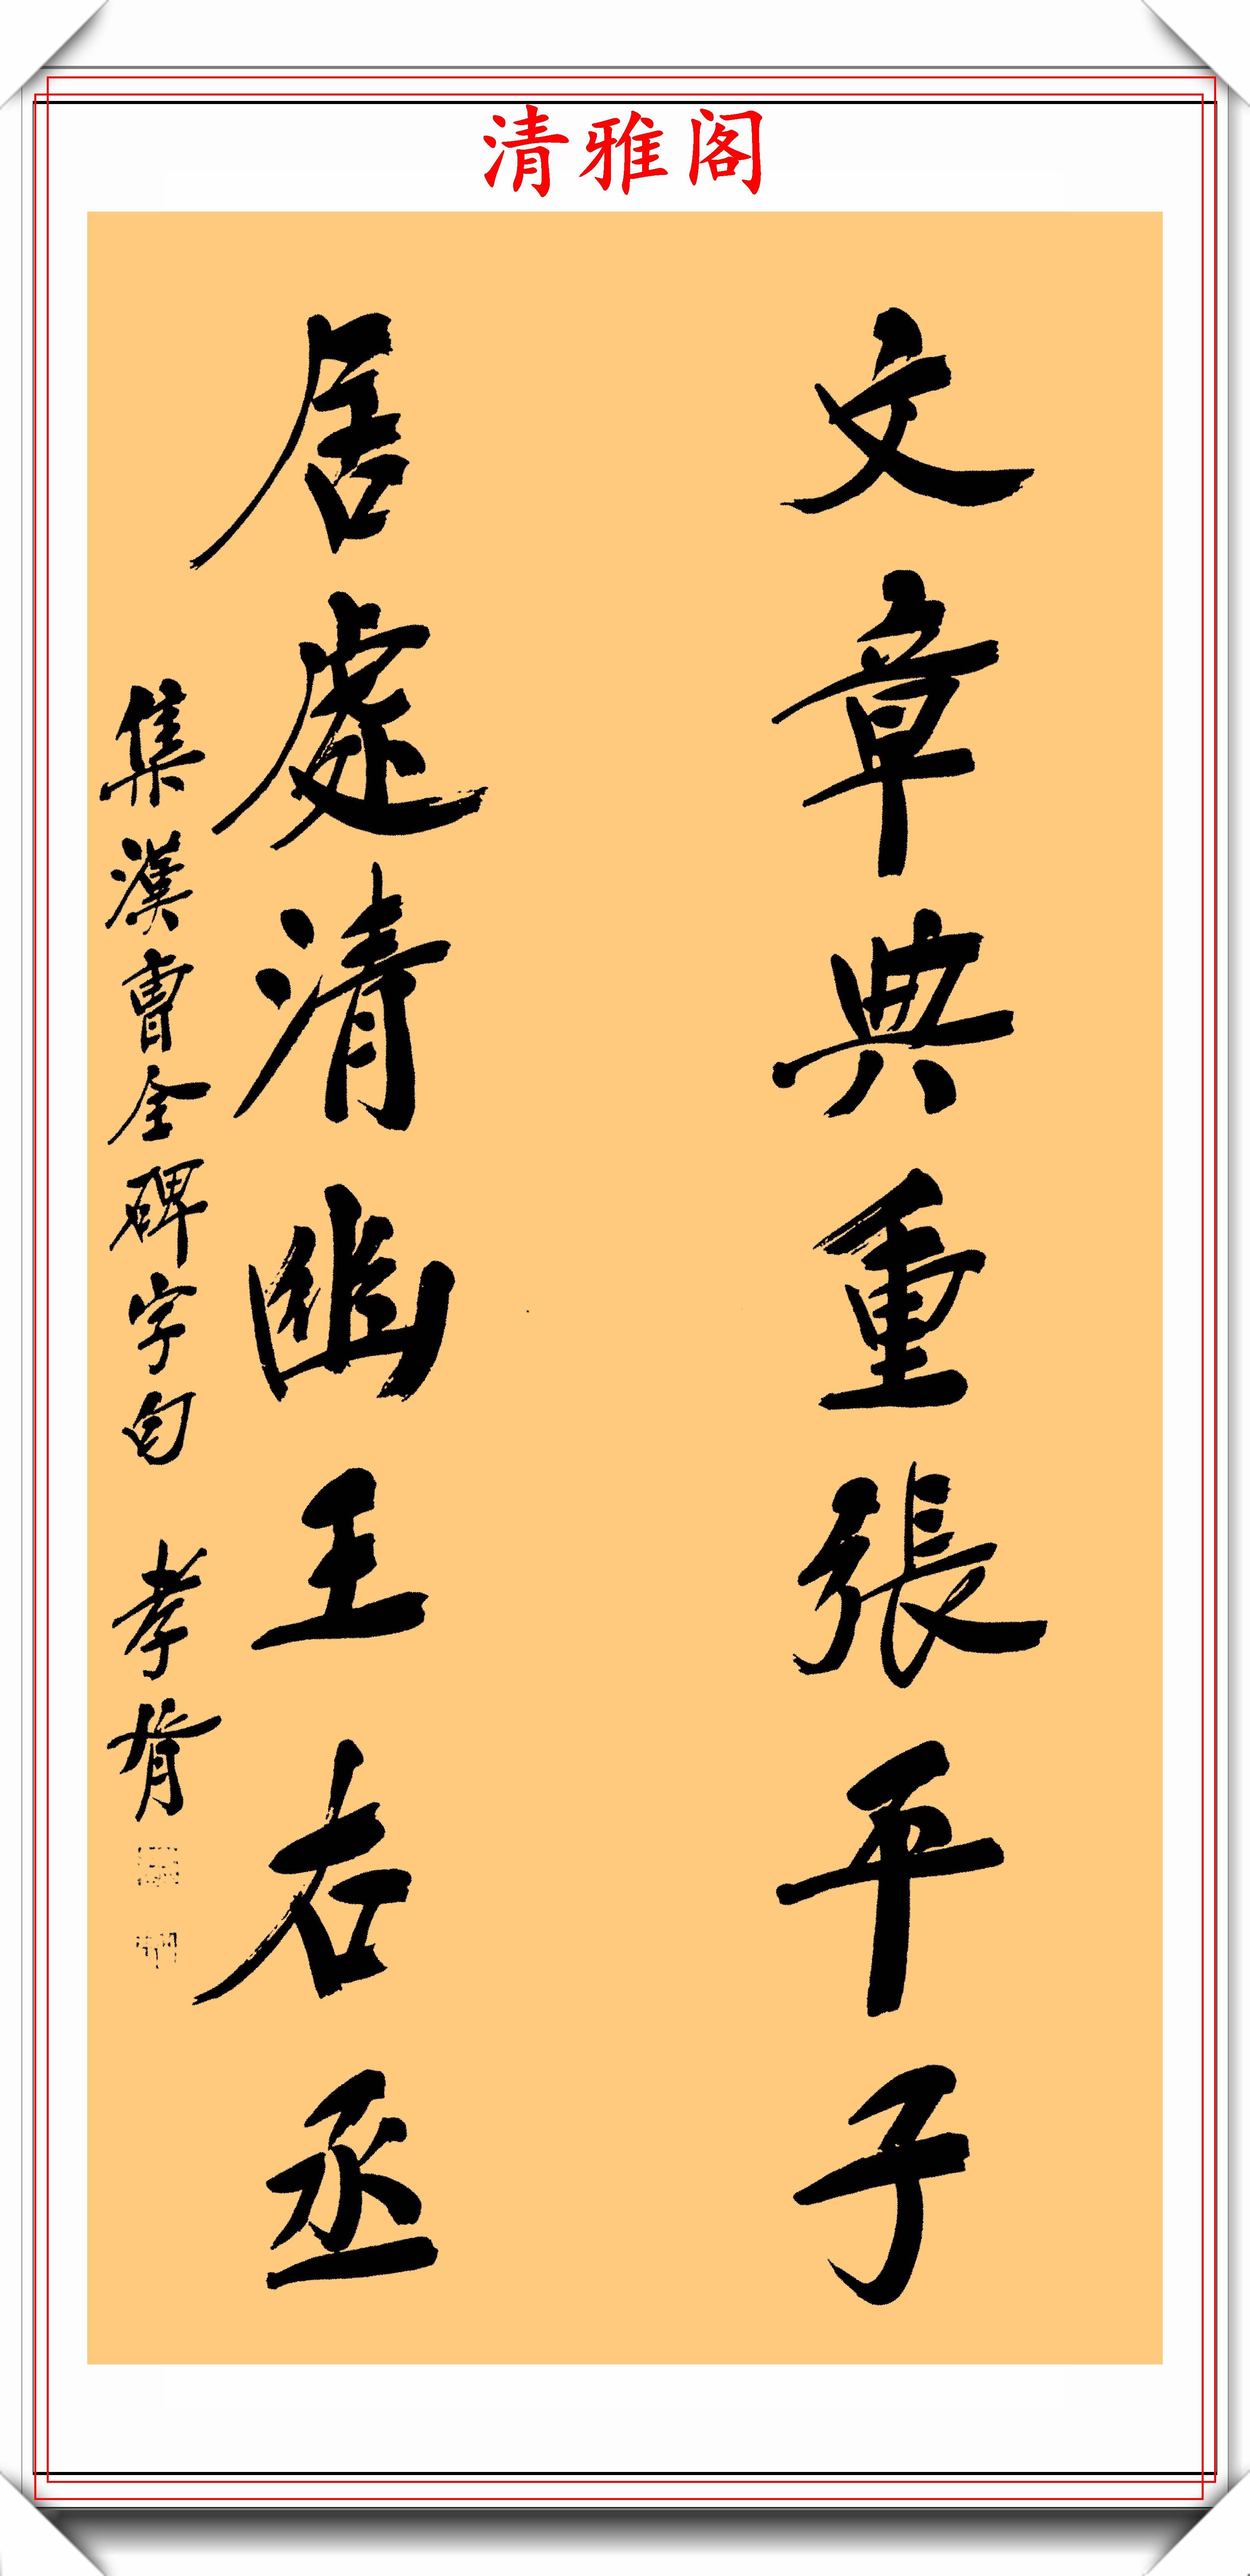 清雅阁
文章典重張平子
居處清幽王右丞
集漢曹全碑字句 孝胥